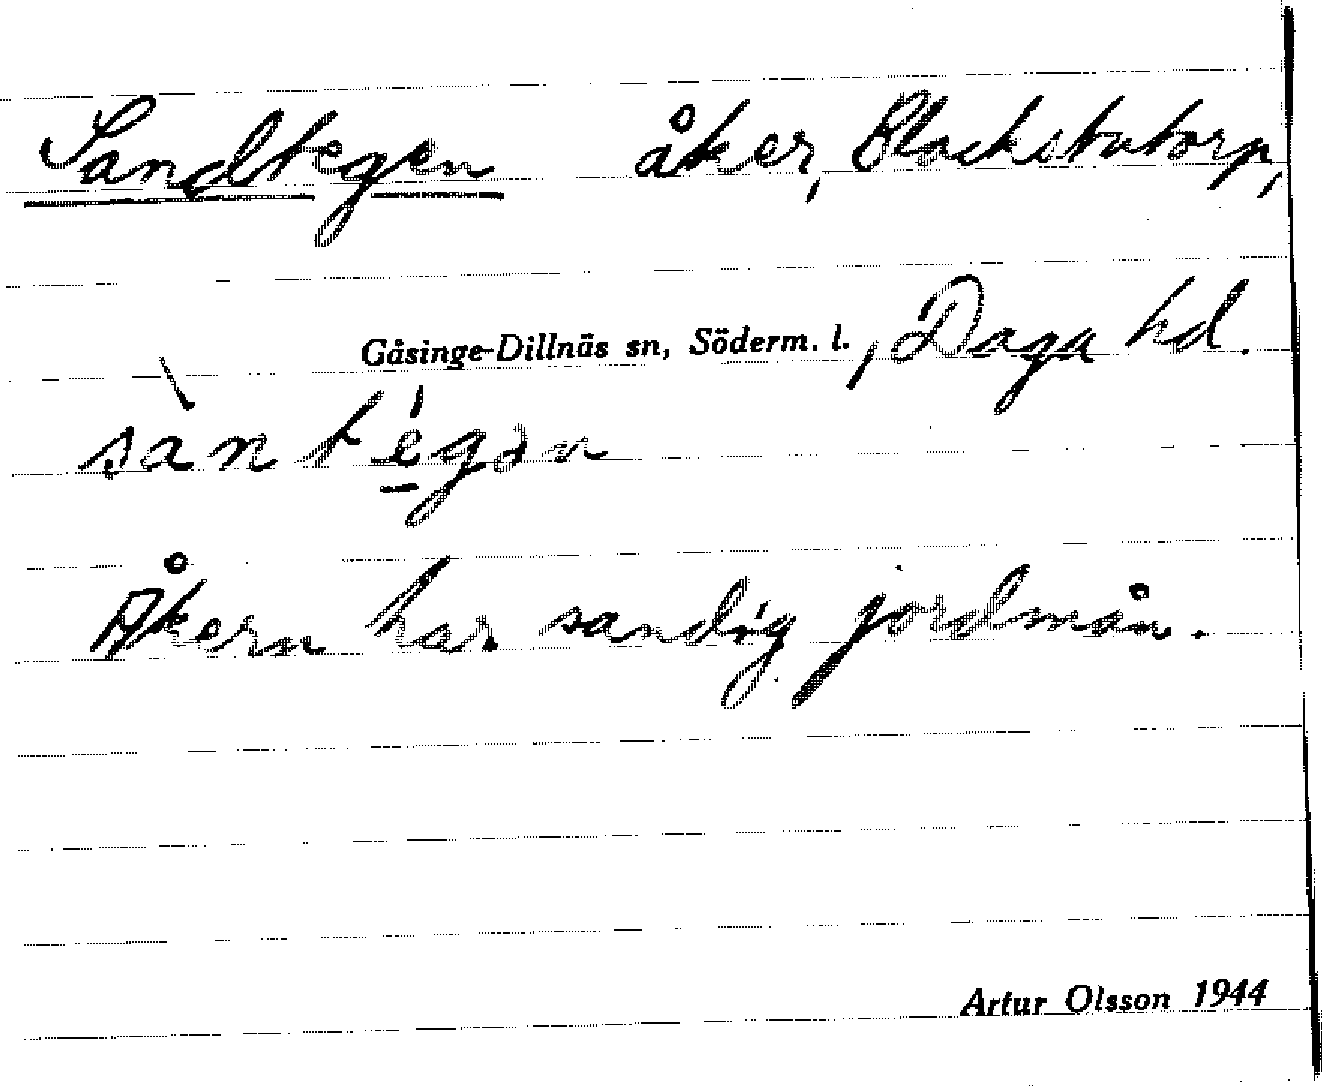 Sandtegen åker, Blackstatorp,
Gåsinge-Dillnäs sn, Söderm. l., Daga hd.
sàntégən
Åkern har sandig jordmån.
Artur Olsson 1944